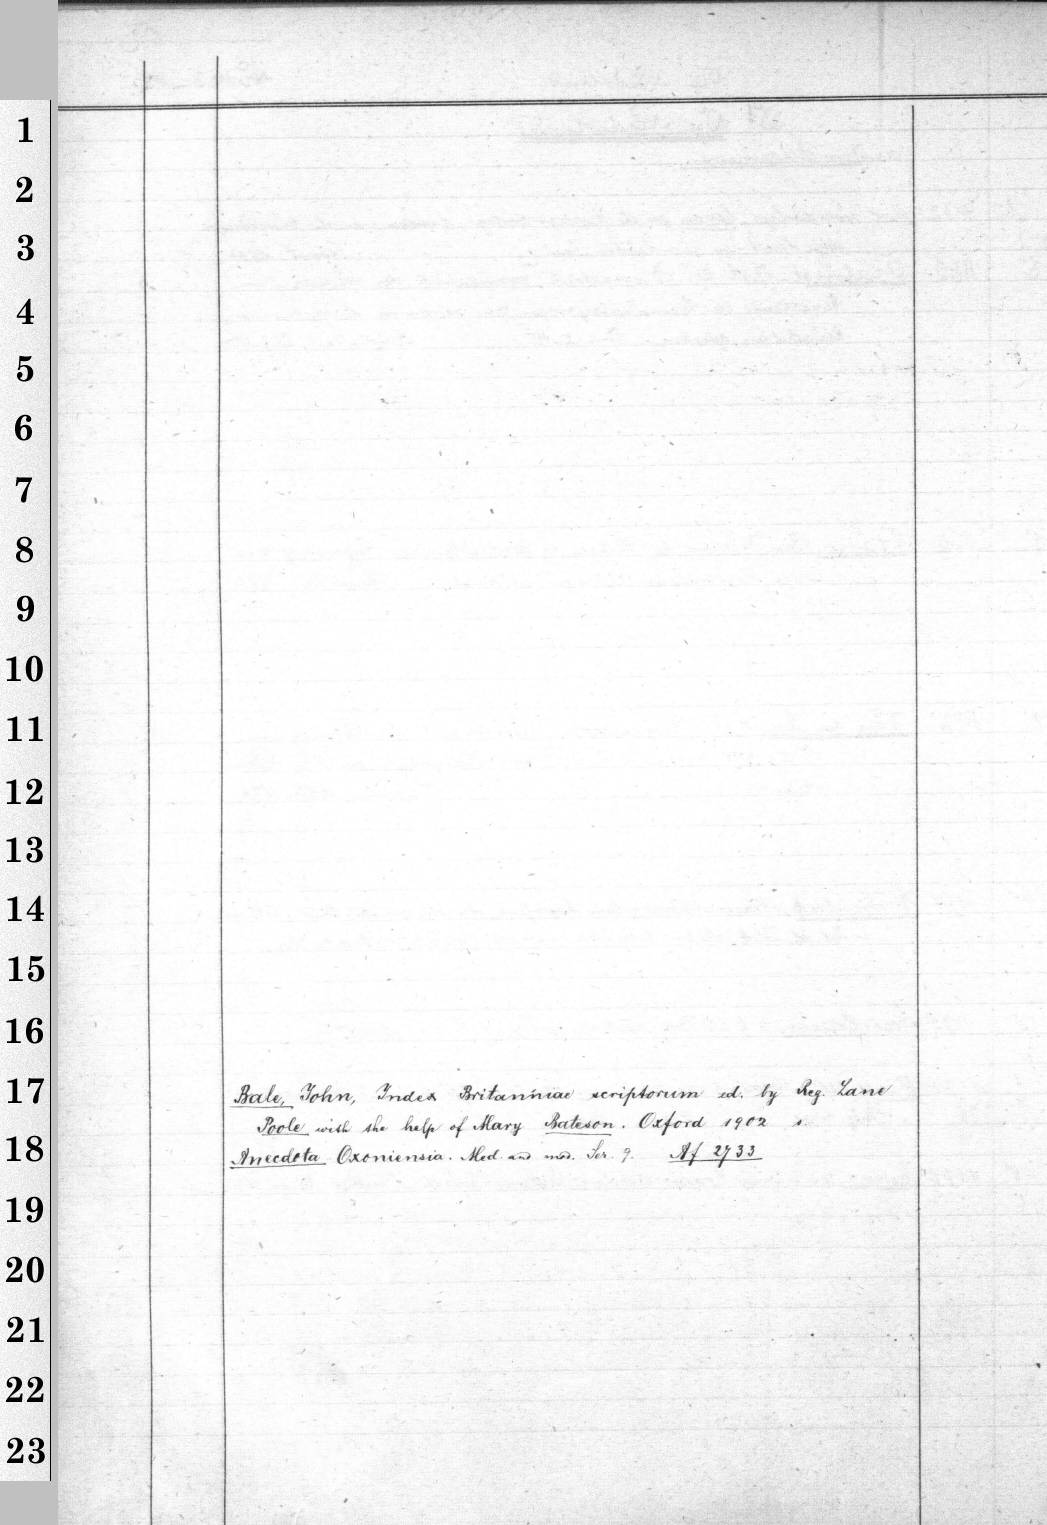 1
2
3
4
5
6
7
8
9
10
11
12
13
14
15
16
17
Bale, John, Index Britanniae scriptorum ed. by Reg. Lane
Poole with the help of Mary Bateson. Oxford 1902
18
Anecdota Oxoniensia. Med. and mod. Ser. 9. Af 2733
19
20
21
22
23